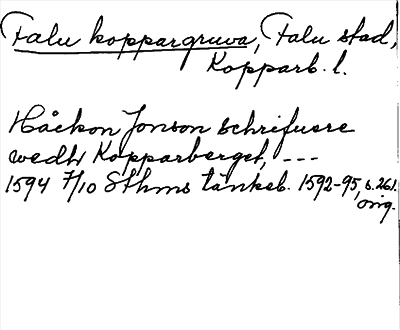 Falu koppargruva, Falu stad,
Kopparb. l.
Håckon Jonson schrifuere
wedh Kopparberget, ---
1594 7/10 Sthms tänkeb. 1592-95, s. 261.
orig.